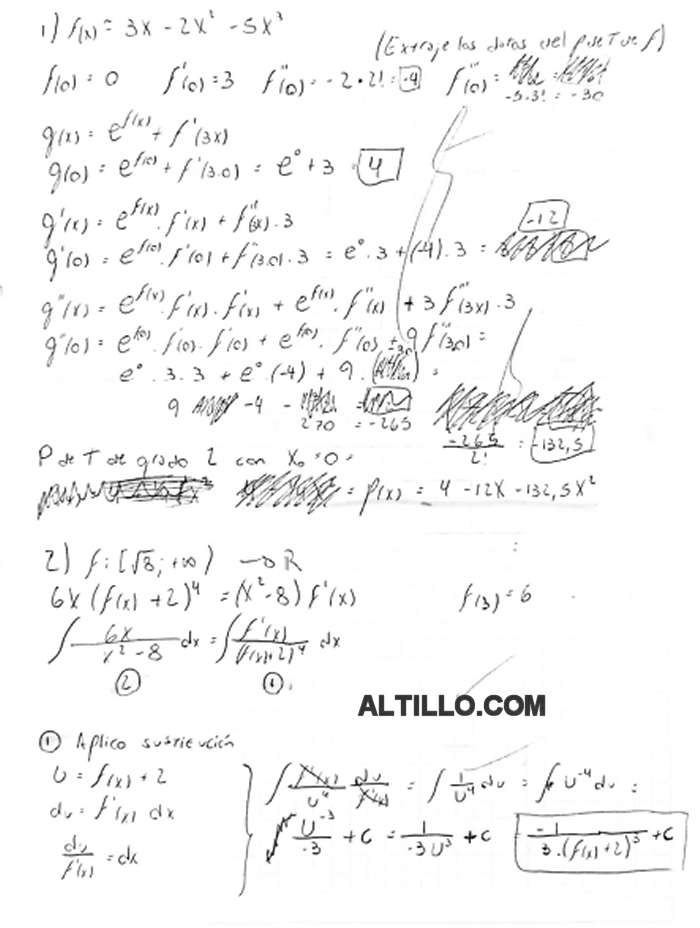 1) f(x) = 3x - 2x² - 5x³
(Extraje los datos del P de T de f)
f(0) = 0 f'(0) = 3 f''(0) = -2·2! = -4 f'''(0) =
-5·3! = -30
g(x) = e^f(x) + f'(3x)
g(0) = e^f(0) + f'(3·0) = e° + 3 = 4
g'(x) = e^f(x) · f'(x) + f''(3x) · 3
g'(0) = e^f(0) · f'(0) + f''(3·0) · 3 = e° · 3 + (-4) · 3 = -12
g''(x) = e^f(x) · f'(x) · f'(x) + e^f(x) · f''(x) + 3 f'''(3x) · 3
g''(0) = e^f(0) · f'(0) · f'(0) + e^f(0) · f''(0) + 9 f'''(3·0) =
e° · 3 · 3 + e° · (-4) + 9 · =
9 -4 - 270 = -265
-265/2! = -132,5
P de T de grado 2 con x₀ = 0 =
= P(x) = 4 - 12x - 132,5x²
2) f: [√8; +∞) → R
6x (f(x) + 2)⁴ = (x² - 8) f'(x) f(3) = 6
∫ 6x/(x² - 8) dx = ∫ f'(x)/(f(x)+2)⁴ dx
② ①
ALTILLO.COM
① Aplico sustitución
U = f(x) + 2
du = f'(x) dx
du/f'(x) = dx
∫ f'(x)/U⁴ du/f'(x) = ∫ 1/U⁴ du = ∫ U⁻⁴ du =
U⁻³/-3 + C = 1/-3U³ + C = -1/3·(f(x)+2)³ + C